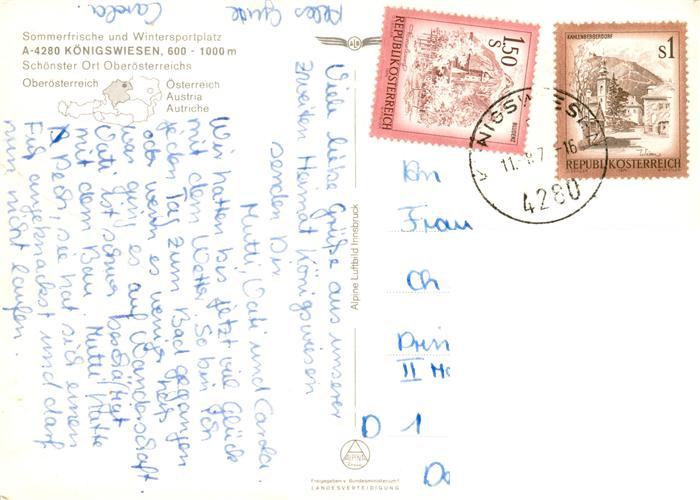 Sommerfrische und Wintersportplatz
A-4280 KÖNIGSWIESEN, 600 - 1000 m
Schönster Ort Oberösterreichs
Oberösterreich
Österreich
Austria
Autriche
Viele liebe Grüße aus unserer
zweiten Heimat Königswiesen
senden Dir
Mutti, Vati und Carola.
Wir hatten bis jetzt viel Glück
mit dem Wetter. So bin ich
jeden Tag zum Bad gegangen
oder wenn es weniger heiß
war ging es auf Wanderschaft.
Vati ist schwer beschäftigt
mit dem Bau. Mutti hatte
Pech, sie hat sich einen
Fuß angeknackst und darf
nun nicht laufen.
Alles Gute
Carola
ALPINA
Freigegeben v. Bundesministerium f.
LANDESVERTEIDIGUNG
Alpine Luftbild Innsbruck
REPUBLIK ÖSTERREICH
1.50
S
BLUDENZ
KAHLENBERGERDORF
s1
REPUBLIK ÖSTERREICH
4280
An
Frau
Ch
Prin
II
D 1